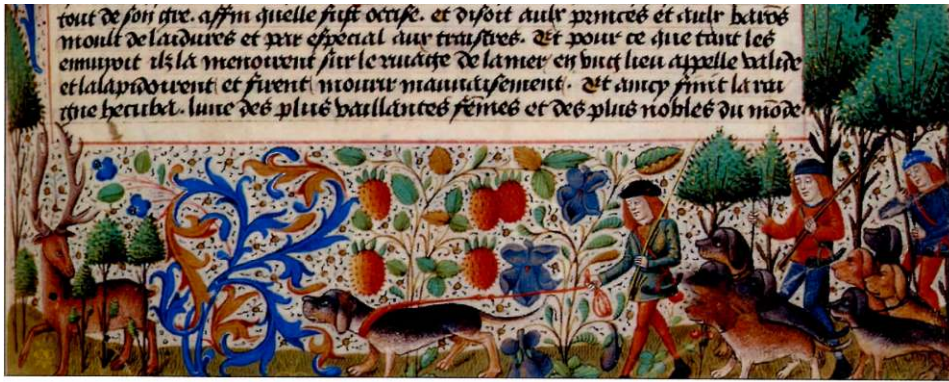 tout de son gre. affin quelle fust occise. et disoit aulx princes et aulx barōs
moult de laidures et par especial aux traistres. Et pour ce que tant les
ennuyoit ilz la menoirent sur le riuaige de la mer en vng lieu appelle valide
et la lapidoirent et firent mourir mauuaisement. Et aincy finit la rai
gne hecuba. lune des plus vaillantes fēmes et des plus nobles du mōde